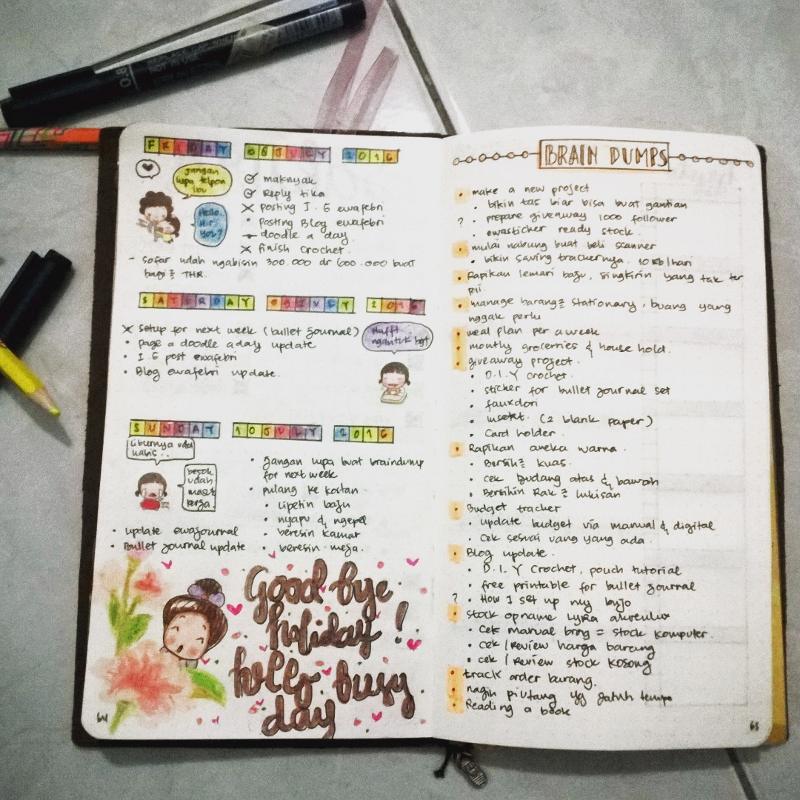 FRIDAY 08 JULY 2016
jangan
lupa telpon
ibu
Hello.
H.r.
you?
maknyak
Reply tika
posting I.G ewafebri
posting Blog ewafebri
doodle a day
finish crochet.
- sofar udah ngabisin 300.000 dr 600.000 buat
bagi2 THR.
SATURDAY 09 JULY 2016
setup for next week (bullet journal)
• page a doodle aday update
• I G post ewafebri
• Blog ewafebri update.
Hufft
ngantuk bgt
SUNDAY 10 JULY 2016
liburnya udah
habis..
besok
udah
masuk
kerja.
• update ewajournal
• Bullet journal update
• jangan lupa buat braindump
for next week
• pulang ke kostan
• lipetin baju
• nyapu & ngepel
• beresin kamar
• beresin meja.
Good bye
holiday!
hello busy
day
64
BRAIN DUMPS
• make a new project
• bikin tas biar bisa buat gantian
? • prepare giveaway 1000 follower
• ewasticker ready stock.
• mulai nabung buat beli scanner
• bikin saving trackernya. 10rb/hari
• Rapikan lemari baju, singkirin yang tak ter
pii.
• manage barang2 stationary, buang yang
nggak perlu
• meal plan per a week
• monthy groceries & house hold.
• giveaway project.
• D.I.Y crochet.
• sticker for bullet journal set
• fauxdori
• insert. (2 blank paper)
• Card holder.
• Rapikan aneka warna.
• Bersih2 kuas.
• cek gudang atas & bawah
• Bersihin Rak2 lukisan
• Budget tracker
• update budget via manual & digital
• Cek sesuai uang yang ada.
• Blog update.
• D.I.Y Crochet, pouch tutorial
• free printable for bullet journal
? • How I set up my bujo
• stock opname LYRA
• Cek manual brng = stock komputer.
• cek / review harga barang
• cek / Review stock kosong
• track order barang.
• nagih piutang yg jatuh tempo
• Reading a book
65